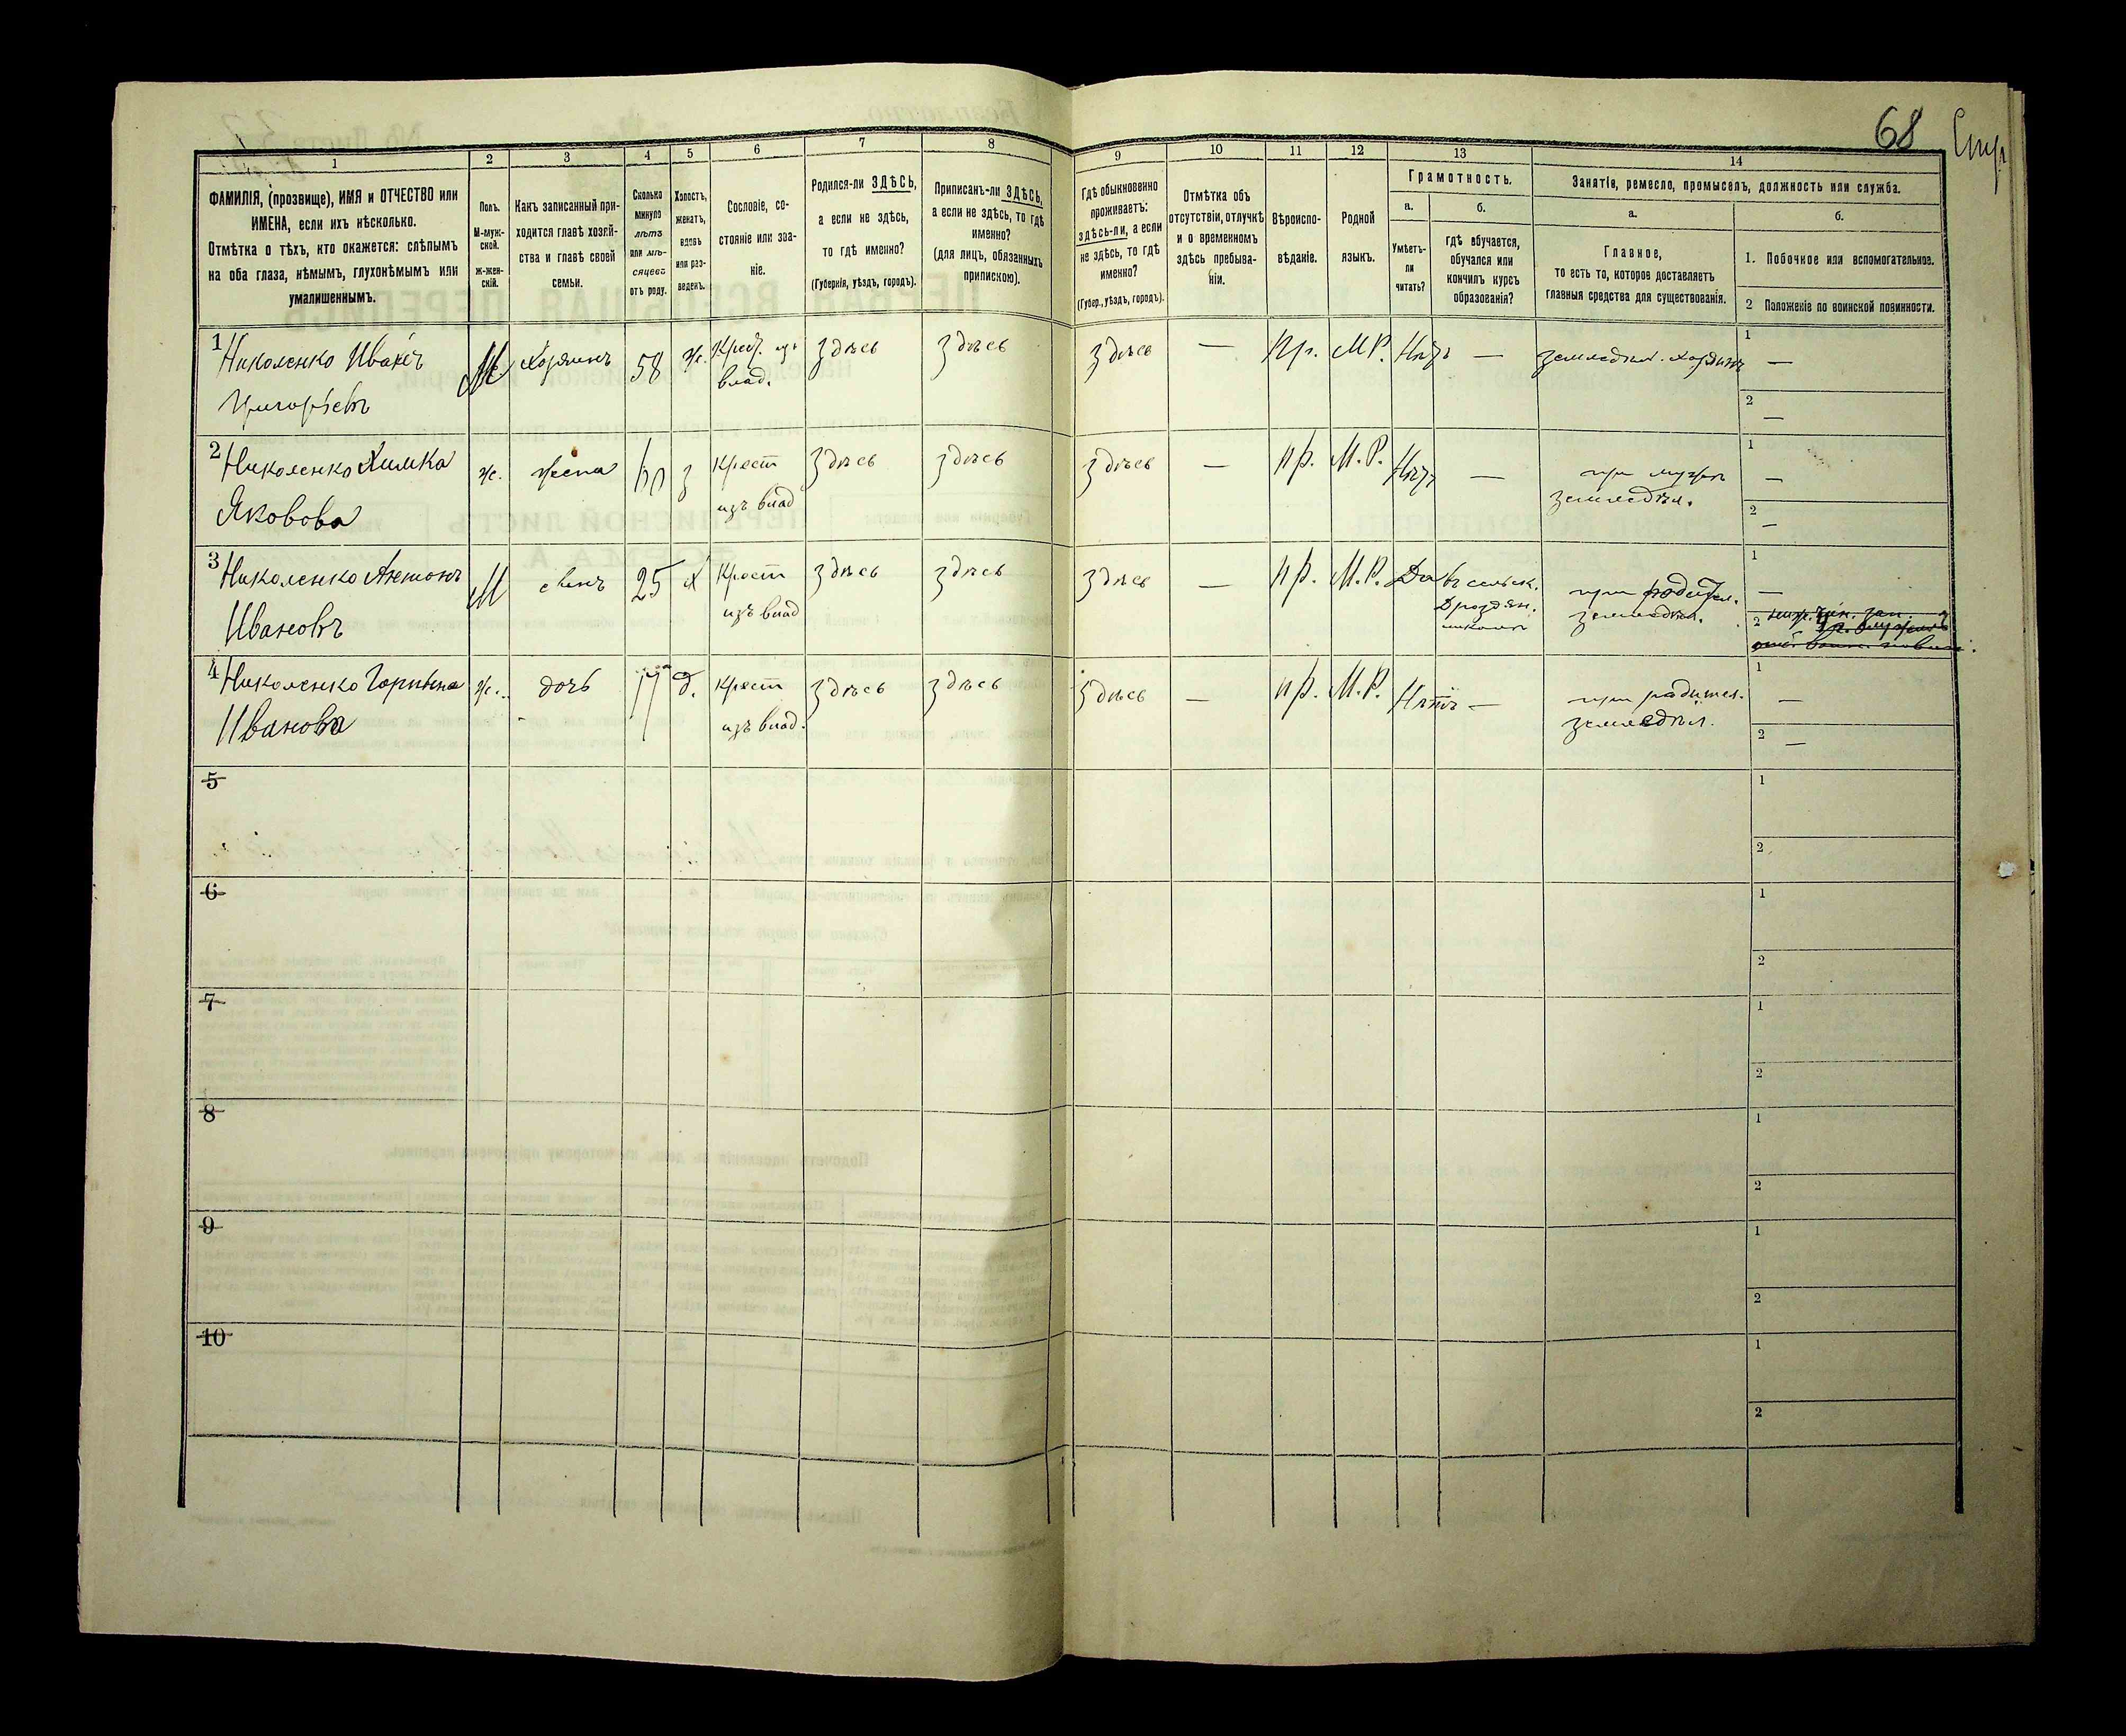 68
1
2
3
4
5
6
7
8
ФАМИЛІЯ, (прозвище), ИМЯ и ОТЧЕСТВО или
ИМЕНА, если ихъ нѣсколько.
Отмѣтка о тѣхъ, кто окажется: слѣпымъ
на оба глаза, нѣмымъ, глухонѣмымъ или
умалишеннымъ.
Полъ.
М-муж-
ской.
ж-жен-
скій.
Какъ записанный при-
ходится главѣ хозяй-
ства и главѣ своей
семьи.
Сколько
минуло
лѣтъ
или мѣ-
сяцевъ
отъ роду.
Холостъ,
женатъ,
вдовъ
или раз-
веденъ.
Сословіе, со-
стояніе или зва-
ніе.
Родился-ли ЗДѢСЬ,
а если не здѣсь,
то гдѣ именно?
(Губернія, уѣздъ, городъ).
Приписанъ-ли ЗДѢСЬ,
а если не здѣсь, то гдѣ
именно?
(для лицъ, обязанныхъ
припискою).
9
10
11
12
13
14
Гдѣ обыкновенно
проживаетъ:
здѣсь-ли, а если
не здѣсь, то гдѣ
именно?
(Губер., уѣздъ, городъ).
Отмѣтка объ
отсутствіи, отлучкѣ
и о временномъ
здѣсь пребыва-
ніи.
Вѣроиспо-
вѣданіе.
Родной
языкъ.
Грамотность.
а.
Умѣетъ-
ли
читать?
б.
гдѣ обучается,
обучался или
кончилъ курсъ
образованія?
Занятіе, ремесло, промыселъ, должность или служба.
а.
Главное,
то есть то, которое доставляетъ
главныя средства для существованія.
б.
1. Побочное или вспомогательное.
2 Положеніе по воинской повинности.
1 Николенко Иванъ М Хозяинъ 58 ж. Крест. изъ здѣсь здѣсь здѣсь — Пр. М.Р. Нѣтъ — земледѣл. хозяинъ 1 —
Григорьевъ влад. 2 —
2 Николенко Химка ж. жена 60 з Крест здѣсь здѣсь здѣсь — пр. М.Р. Нѣтъ — при мужѣ 1 —
Яковова изъ влад земледѣл. 2 —
3 Николенко Антонъ М сынъ 25 х Крест здѣсь здѣсь здѣсь — пр. М.Р. Да въ сельск. при родител. 1 —
Ивановъ изъ влад земледѣл. 2 ниж. чин. зап.
4 Николенко Горпина ж. дочь 17 д. Крест здѣсь здѣсь здѣсь — пр. М.Р. Нѣтъ — при родител. 1 —
Иванова изъ влад. земледѣл. 2 —
5 1
2
6 1
2
7 1
2
8 1
2
9 1
2
10 1
2